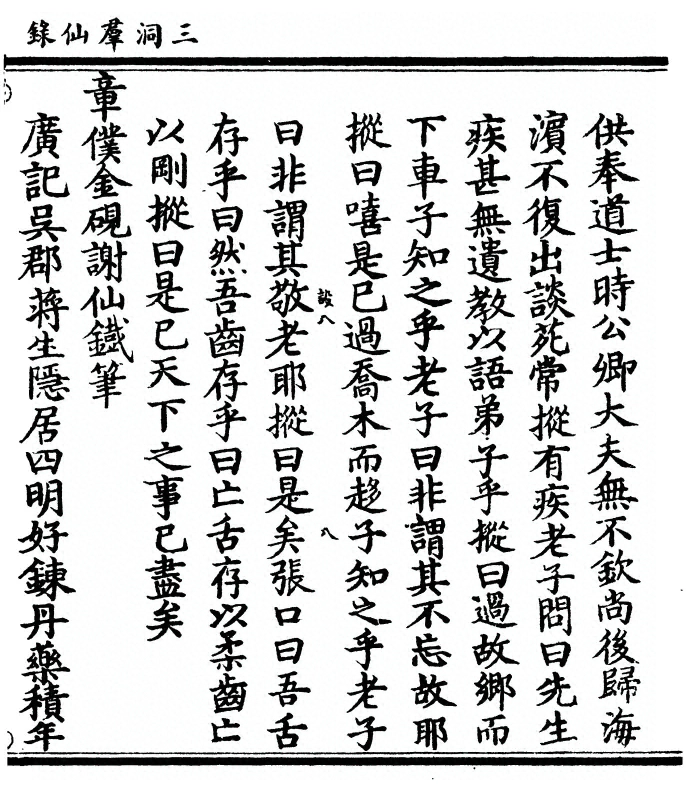 三洞羣仙錄
供奉道士時公卿大夫無不欽尚後歸海
濵不復出談苑常摐有疾老子問曰先生
疾甚無遺教以語弟子乎摐曰過故鄉而
下車子知之乎老子曰非謂其不忘故耶
摐曰嘻是已過喬木而趍子知之乎老子
曰非謂其敬老耶摐曰是矣張口曰吾舌
存乎曰然吾齒存乎曰亡舌存以柔齒亡
以剛摐曰是已天下之事已盡矣
章僕金硯謝仙鐵筆
廣記吳郡蔣生隱居四明好鍊丹藥積年